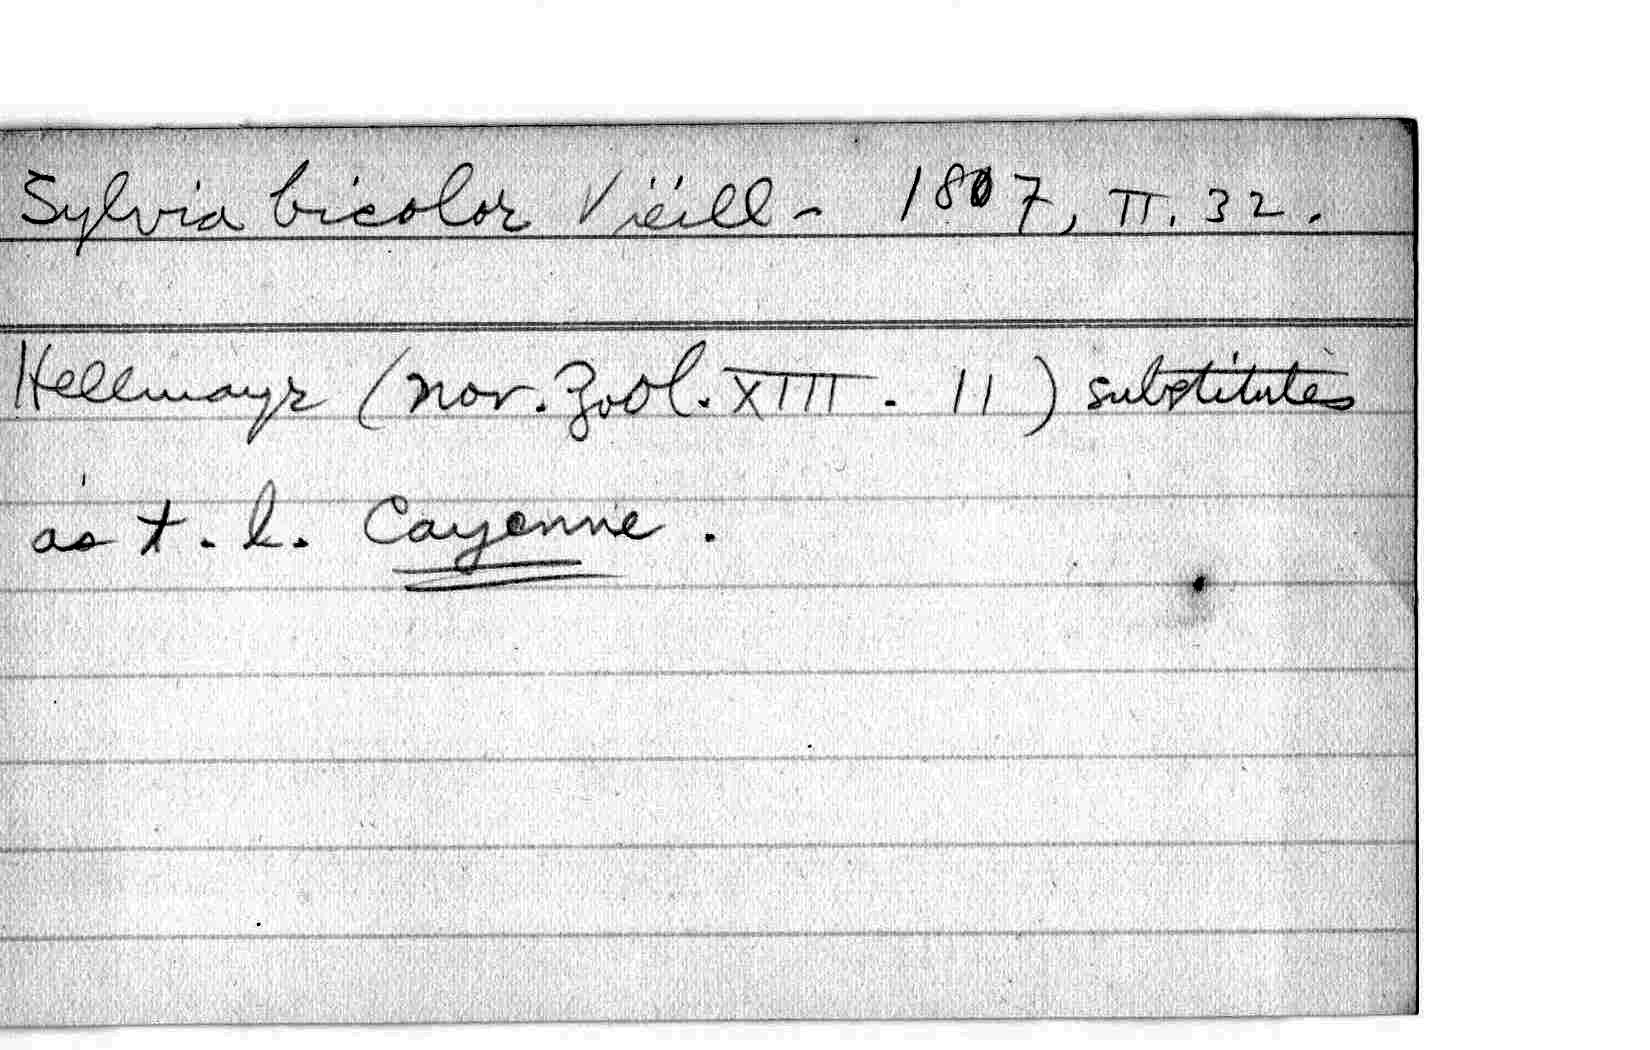 Sylvia bicolor Vieill - 1807, II. 32.
Hellmayr (Nov. Zool. XIII. 11) substitutes
as t. l. Cayenne.